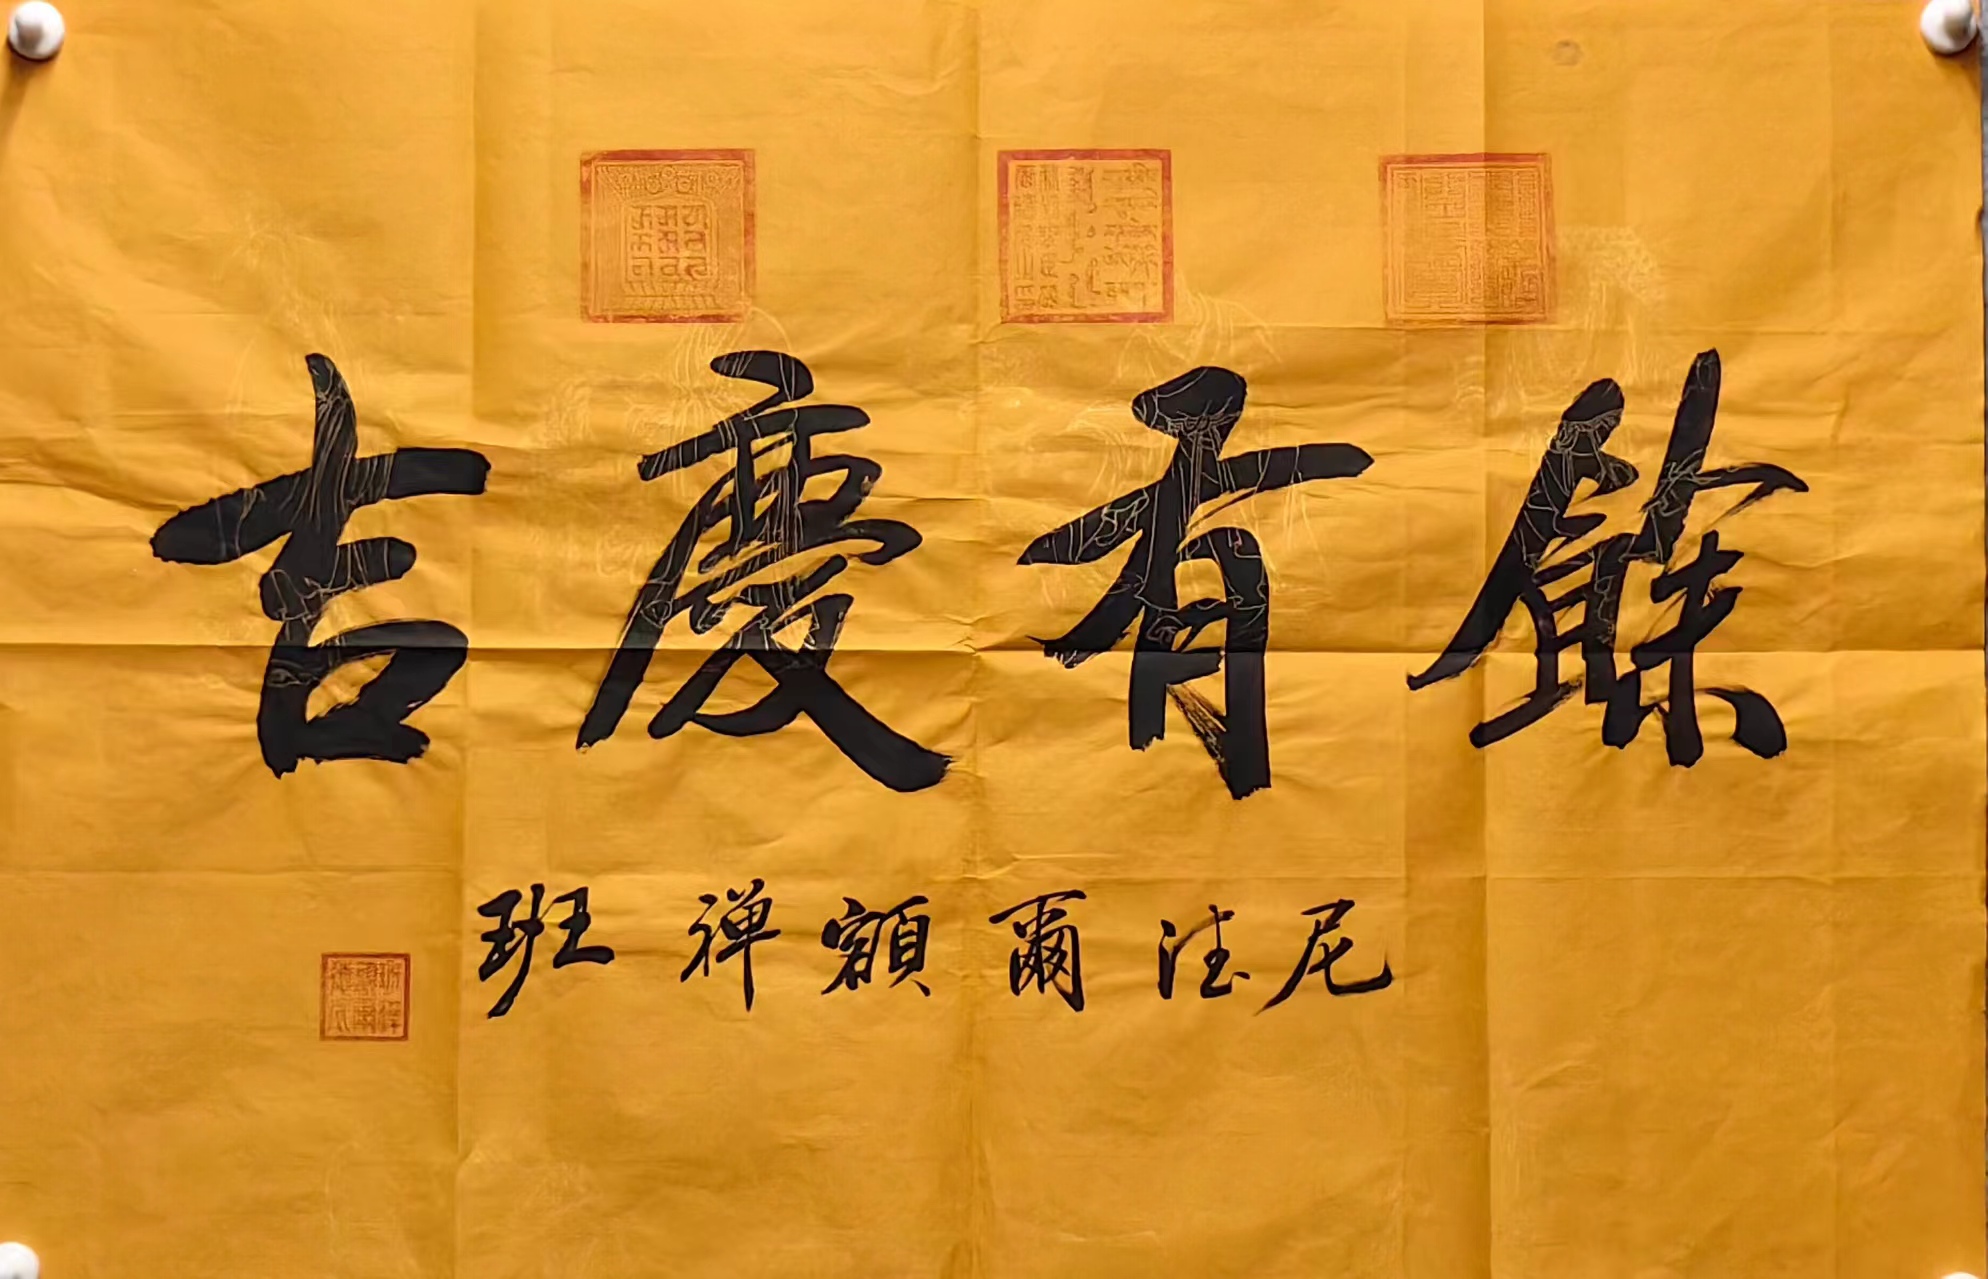 吉慶有餘
班禅額爾德尼